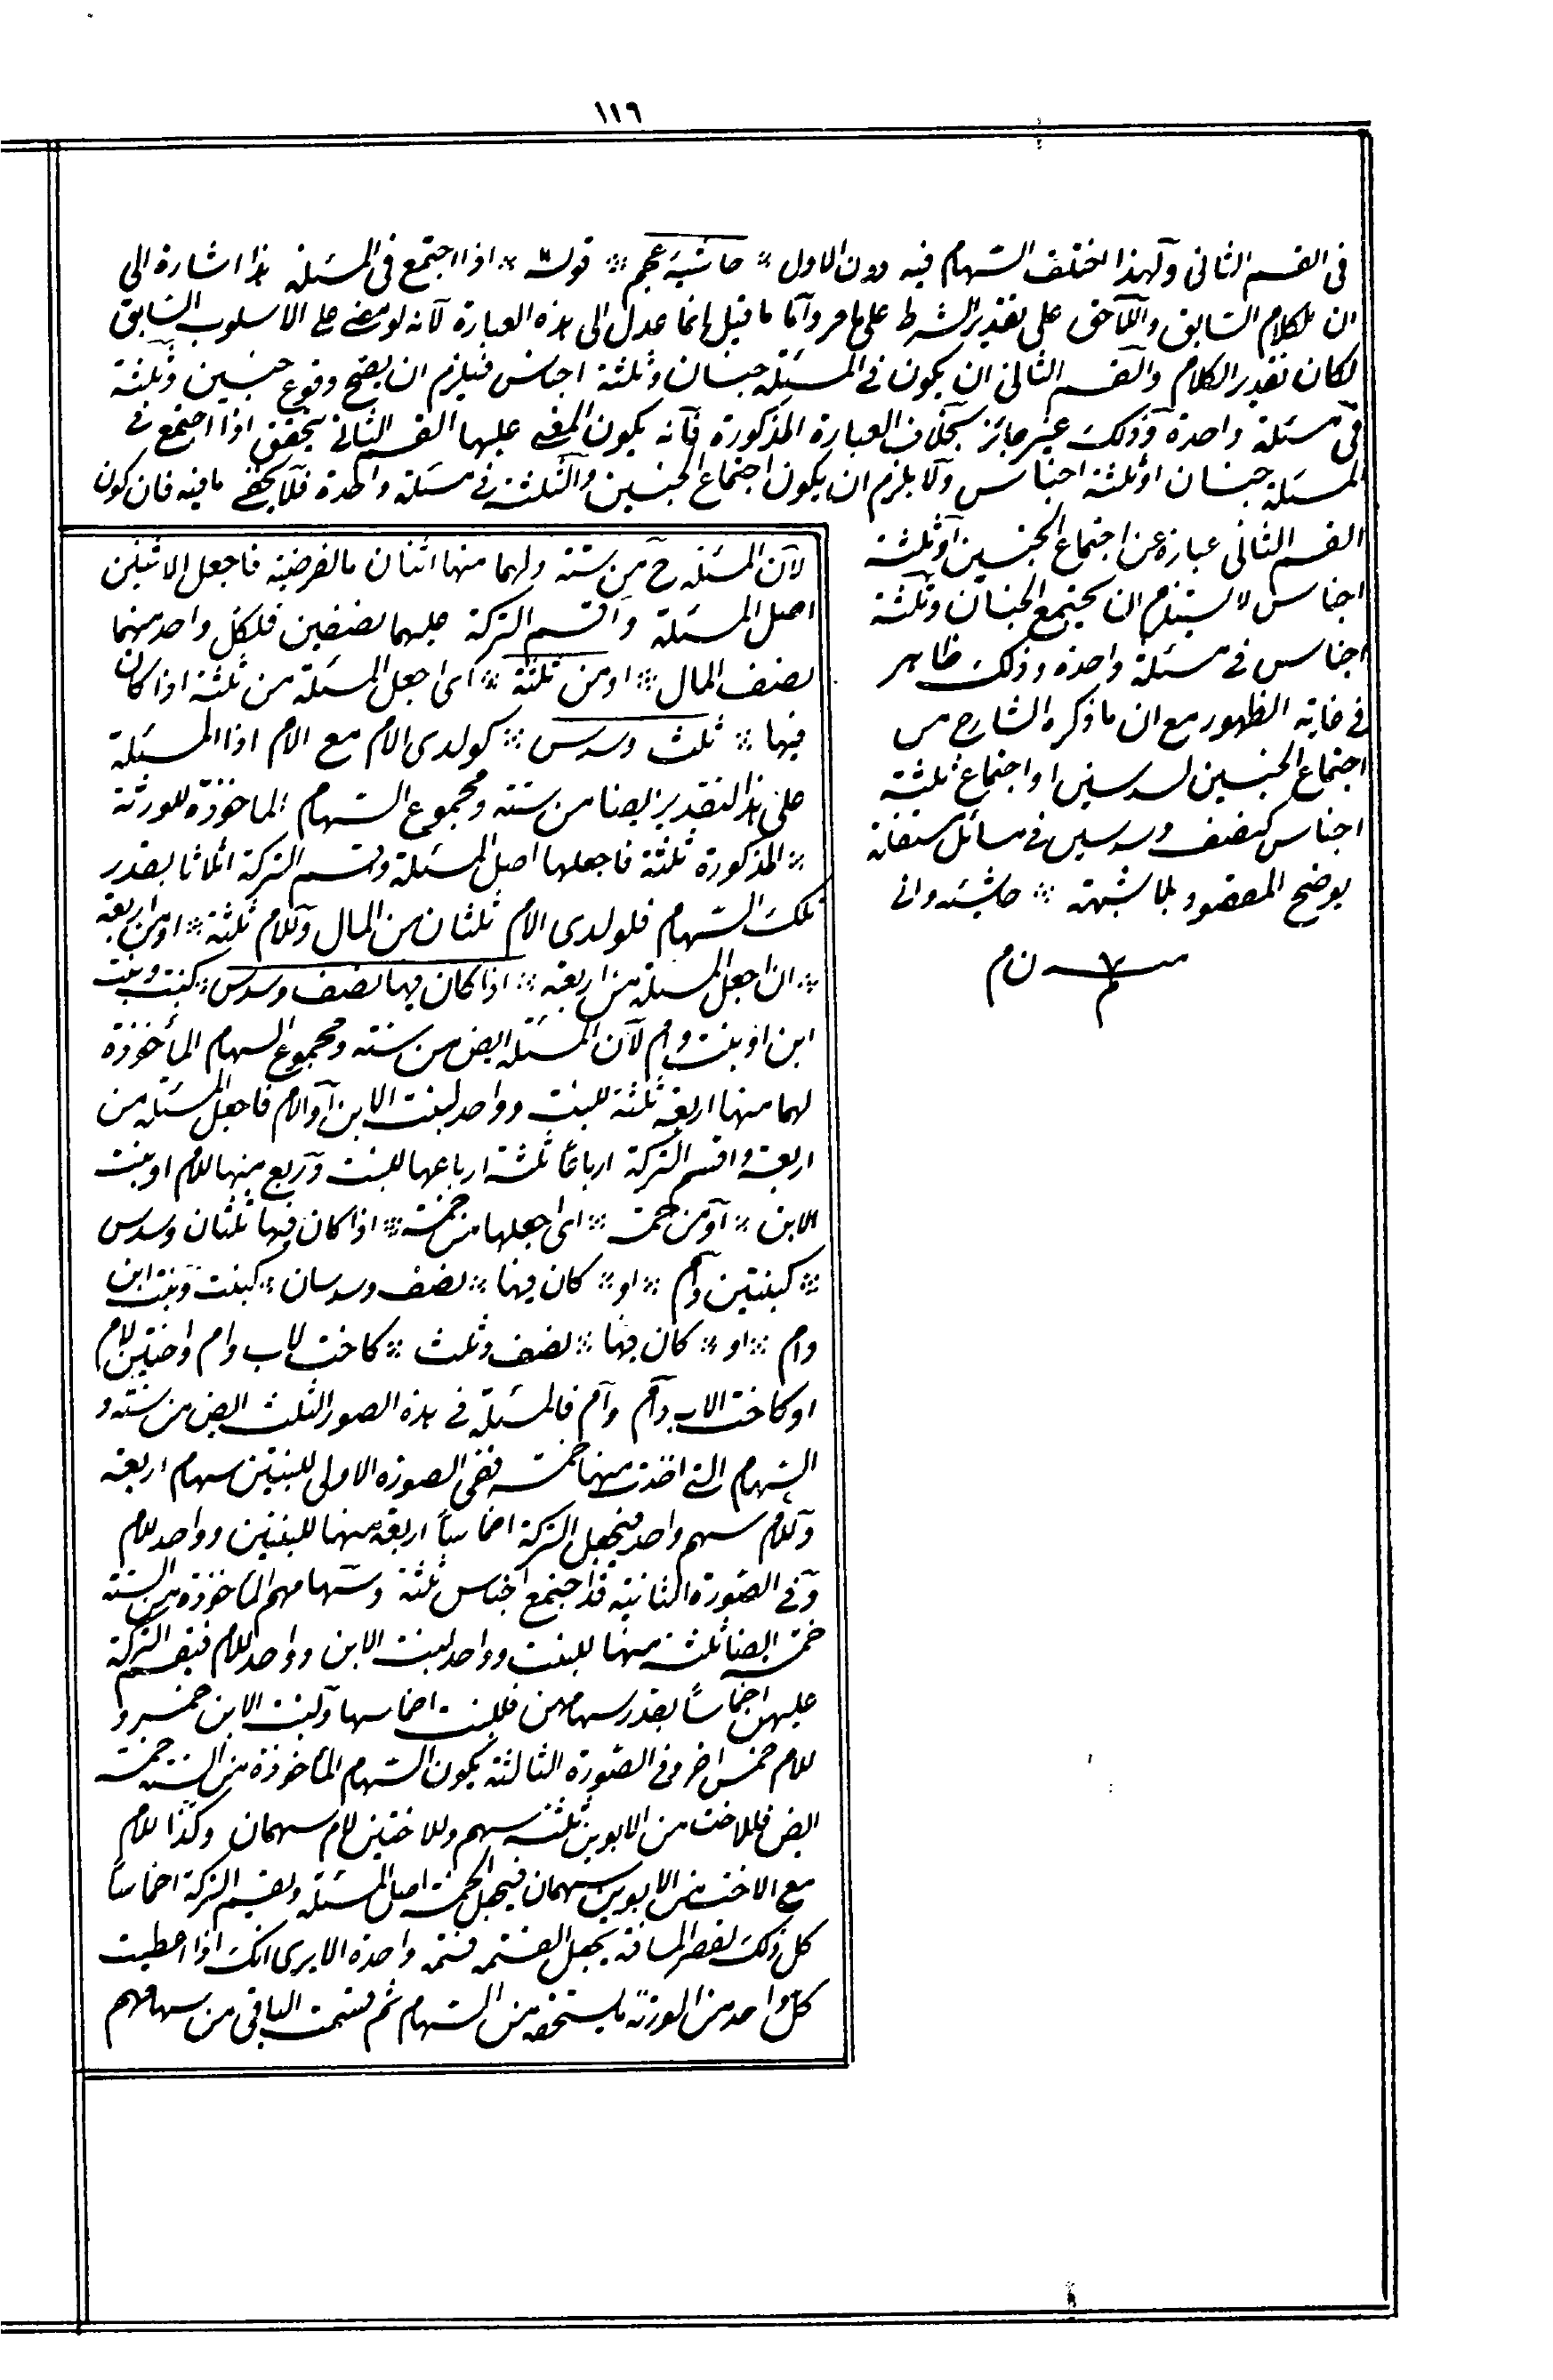 ١١٦
فى القسم الثانى ولهذا اختلف السهام فيه دون الاول ∴ حاشية عجم ∴ قوله ∴ اذا اجتمع فى المسئلة هذا اشارة الى
ان الكلام السابق واللاحق على تقدير الشرط على مامر واما ما قيل انما عدل الى هذه العبارة لانه لو مضى على الاسلوب السابق
لكان تقدير الكلام والقسم الثانى ان يكون فى المسئلة جنسان وثلثة اجناس فيلزم ان يصح وقوع جنسين وثلثة
فى مسئلة واحدة وذلك غير جائز بخلاف العبارة المذكورة فانه يكون المعنى عليها القسم الثانى يتحقق اذا اجتمع فى
المسئلة جنسان او ثلثة اجناس ولا يلزم ان يكون اجتماع الجنسين والثلثة فى مسئلة واحدة فلا يخفى ما فيه فان كون
القسم الثانى عبارة عن اجتماع الجنسين او ثلثة
اجناس لا يستلزم ان يجتمع الجنسان وثلثة
اجناس فى مسئلة واحدة وذلك ظاهر
فى غاية الظهور مع ان ما ذكره الشارح من
اجتماع الجنسين لسدسين او اجتماع ثلثة
اجناس كنصف وسدسين فى مسائل
يوضح المقصود بلا شبهة ∴ حاشيه
م
لان المسئلة ح من ستة ولهما منها اثنان بالفرضية فاجعل الاثنين
اصل المسئلة واقسم التركة عليهما نصفين فلكل واحد منهما
نصف المال ∴ او من ثلثة ∴ اى اجعل المسئلة من ثلثة اذا كان
فيها ∴ ثلث وسدس ∴ كولدى الام مع الام اذا المسئلة
على هذا التقدير ايضا من ستة ومجموع السهام الماخوذة للورثة
∴ المذكورة ثلثة فاجعلها اصل المسئلة وقسم التركة اثلاثا بقدر
تلك السهام فلولدى الام ثلثان من المال وللام ثلثة ∴ او من اربعة
∴ اى اجعل المسئلة من اربعة ∴ اذا كان فيها نصف وسدس ∴ كبنت وبنت
ابن او بنت وام لان المسئلة ايض من ستة ومجموع السهام المأخوذة
لهما منها اربعة ثلثة للبنت وواحد لبنت الابن او الام فاجعل المسئلة من
اربعة واقسم التركة ارباعا ثلثة ارباعها للبنت وربع منها للام او بنت
الابن ∴ او من خمسة ∴ اى اجعلها من خمسة ∴ اذا كان فيها ثلثان وسدس
∴ كبنتين وام ∴ او ∴ كان فيها ∴ نصف وسدسان ∴ كبنت وبنت ابن
وام ∴ او ∴ كان فيها ∴ نصف وثلث ∴ كاخت لاب وام واختين لام
او كاخت لاب وام وام فالمسئلة فى هذه الصور الثلث ايض من ستة و
السهام التى اخذت منها خمسة ففى الصورة الاولى للبنتين سهام اربعة
وللام سهم واحد فيجعل التركة اخماسا اربعة منها للبنتين وواحد للام
وفى الصورة الثانية قد اجتمع اجناس ثلثة وسهامهم الماخوذة من الستة
خمسة ايضا ثلثة منها للبنت وواحد لبنت الابن وواحد للام فيقسم التركة
عليهن اخماسا بقدر سهامهن فللبنت اخماسها ولبنت الابن خمس و
للام خمس اخر وفى الصورة الثالثة يكون السهام المأخوذة من الستة خمسة
ايض فللاخت من الابوين ثلثة سهم وللاختين لام سهمان وكذا للام
مع الاخت من الابوين سهمان فيجعل الخمسة اصل المسئلة ويقسم التركة اخماسا
كل ذلك لقصر المسافة بجعل القسمة قسمة واحدة الا يرى انك اذا اعطيت
كل واحد من الورثة ما يستحقه من السهام ثم قسمت الباقى من سهامهم